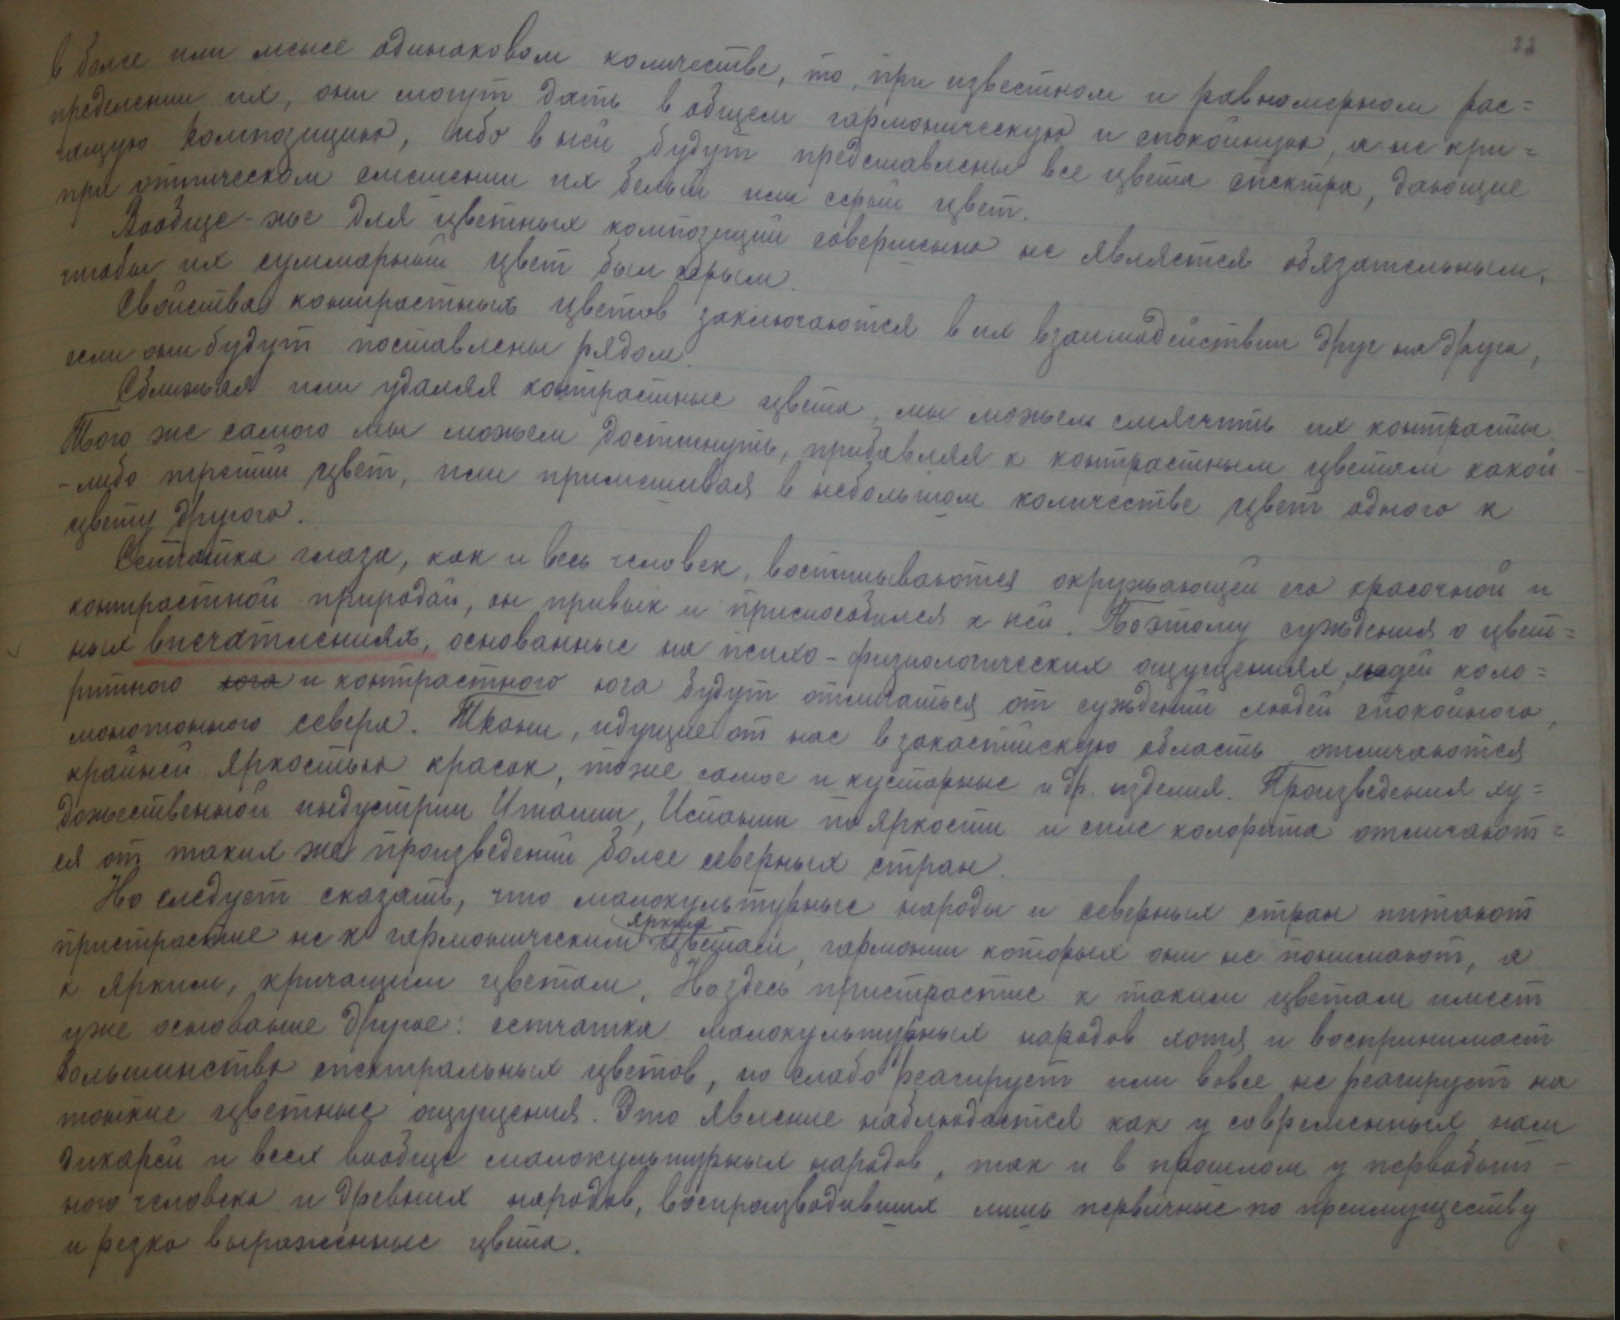 22
в более или менее одинаковом количестве, то, при известном и равномерном рас=
пределении их, они могут дать в общем гармоническую и спокойную, а не кри=
чащую композицию, ибо в ней будут представлены все цвета спектра, дающие
при оптическом смешении их белый или серый цвет.
Вообще-же для цветных композиций совершенно не является обязательным,
чтобы их суммарный цвет был серым.
Свойства контрастных цветов заключаются в их взаимодействии друг на друга,
если они будут поставлены рядом.
Сближая или удаляя контрастные цвета, мы можем смягчить их контрасты.
Того же самого мы можем достигнуть, прибавляя к контрастным цветам какой-
-либо третий цвет, или примешивая в небольшом количестве цвет одного к
цвету другого.
Сетчатка глаза, как и весь человек, воспитываются окружающей его красочной и
контрастной природой, он привык и приспособился к ней. Поэтому суждения о цвет=
ных впечатлениях, основанные на психо-физиологических ощущениях, людей коло=
ритного юга и контрастного юга будут отличаться от суждений людей спокойного,
монотонного севера. Ткани, идущие от нас в закаспийскую область отличаются
крайней яркостью красок, тоже самое и кустарные и др. изделия. Произведения ху=
дожественной индустрии Италии, Испании по яркости и силе колорита отличают=
ся от таких же произведений более северных стран.
Но следует сказать, что малокультурные народы и северных стран питают
пристрастие не к гармоническим ярким цветам, гармонии которых они не понимают, а
к ярким, кричащим цветам. Но здесь пристрастие к таким цветам имеет
уже основание другое: сетчатка малокультурных народов хотя и воспринимает
большинство спектральных цветов, но слабо реагирует или вовсе не реагирует на
тонкие цветные ощущения. Это явление наблюдается как у современных нам
дикарей и всех вообще малокультурных народов, так и в прошлом у первобыт-
ного человека и древних народов, воспроизводивших лишь первичные по преимуществу
и резко выраженные цвета.